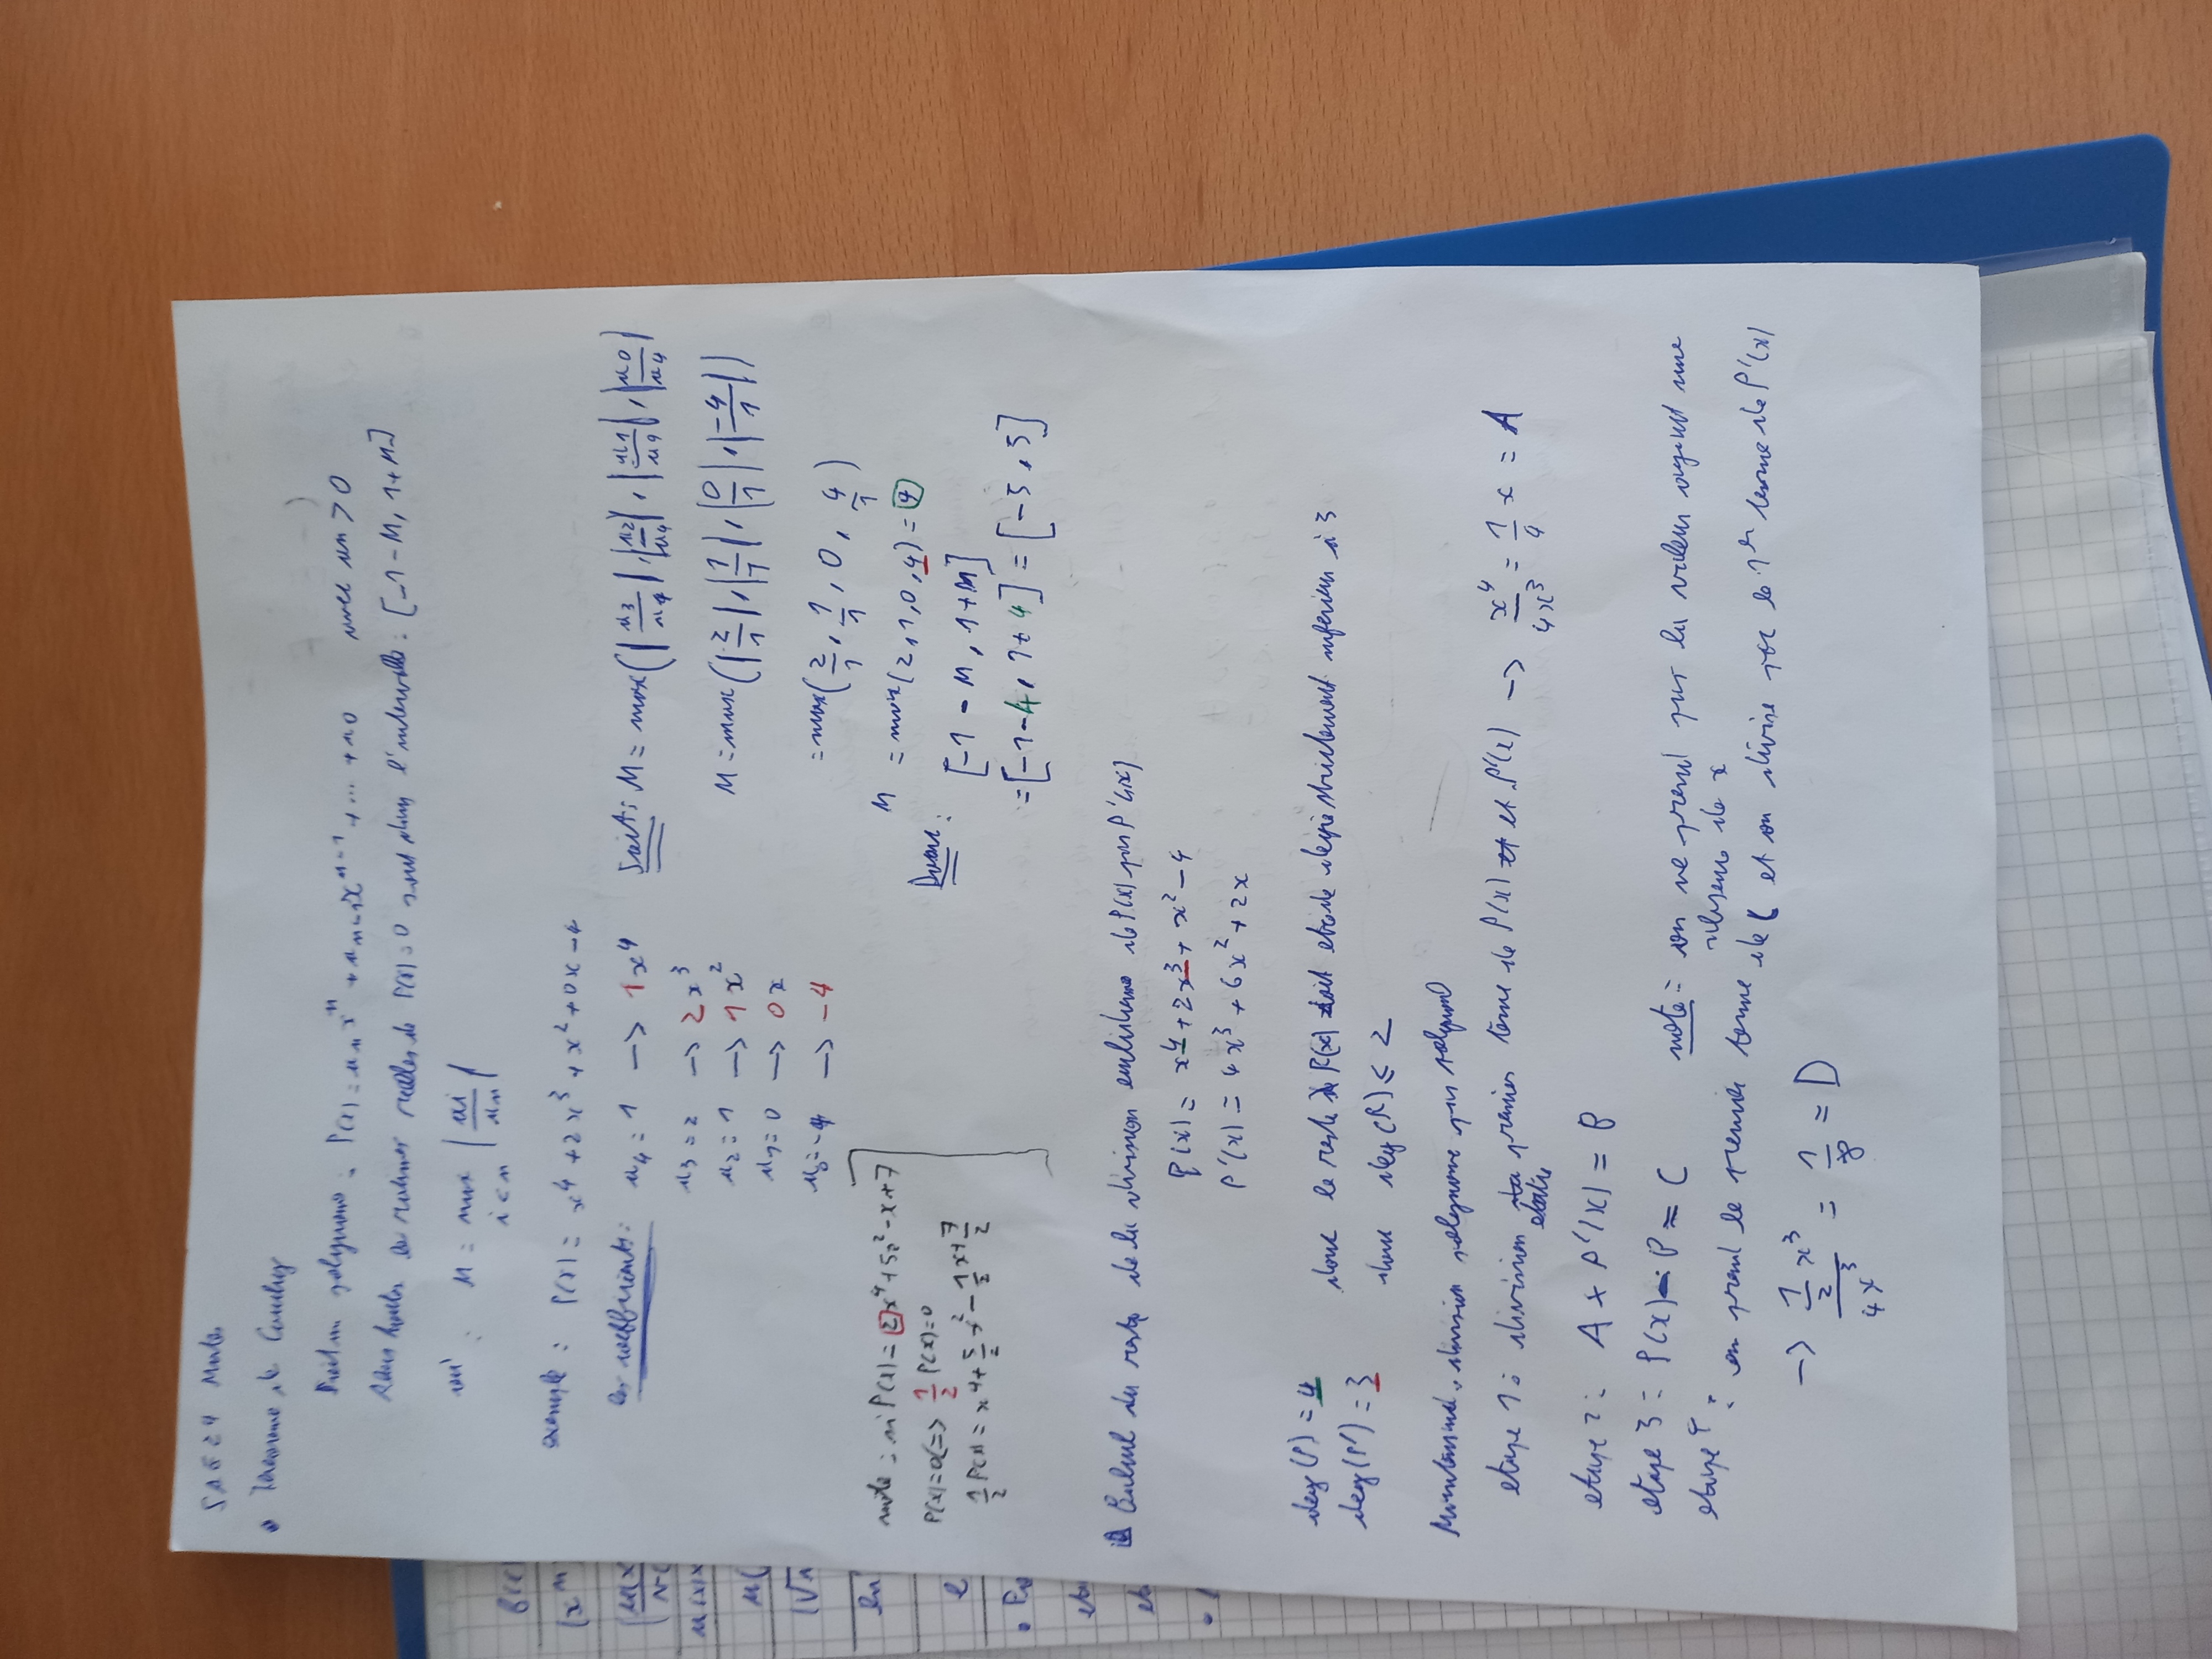 SAE24 Maths
• Theoreme de Cauchy
Soit un polynome : P(x) = a_n x^n + a_n-1 x^n-1 + ... + a0 avec an > 0
Alors toutes les racines reelles de P(x)=0 sont dans l'intervalle : [-1-M, 1+M]
où : M = max i<n |ai/an|
exemple : P(x) = x^4 + 2x^3 + x^2 + 0x - 4
les coefficients :
a4 = 1 -> 1x^4
a3 = 2 -> 2x^3
a2 = 1 -> 1x^2
a1 = 0 -> 0x
a0 = -4 -> -4
Soit : M = max(|a3/a4|, |a2/a4|, |a1/a4|, |a0/a4|
M = max(|2/1|, |1/1|, |0/1|, |-4/1|)
= max(2/1, 1/1, 0, 4/1)
M = max(2,1,0,4) = 4
Donc :
[-1-M, 1+M]
= [-1-4, 1+4] = [-5, 5]
note : si P(x) = 2x^4 + 5x^2 - x + 7
P(x)=0 <=> 1/2 P(x)=0
1/2 P(x) = x^4 + 5/2 x^2 - 1/2 x + 7/2
Calcul du reste de la division euclidienne de P(x) par P'(x)
P(x) = x^4 + 2x^3 + x^2 - 4
P'(x) = 4x^3 + 6x^2 + 2x
deg(P) = 4
deg(P') = 3
donc le reste R(x) doit etre de degré strictement inferieur à 3
donc deg(R) ≤ 2
Maintenant : division polynome par polynome
etape 1 : division entre premier terme de P(x) et P'(x) -> x^4/4x^3 = 1/4 x = A
etape 2 : A × P'(x) = B
etape 3 = P(x) - B = C
note = on ne prend pas la valeur ayant une absence de x
etape 4 : on prend le premier terme de C et on divise par le 1er terme de P'(x)
-> 1/2 x^3 / 4x^3 = 1/8 = D